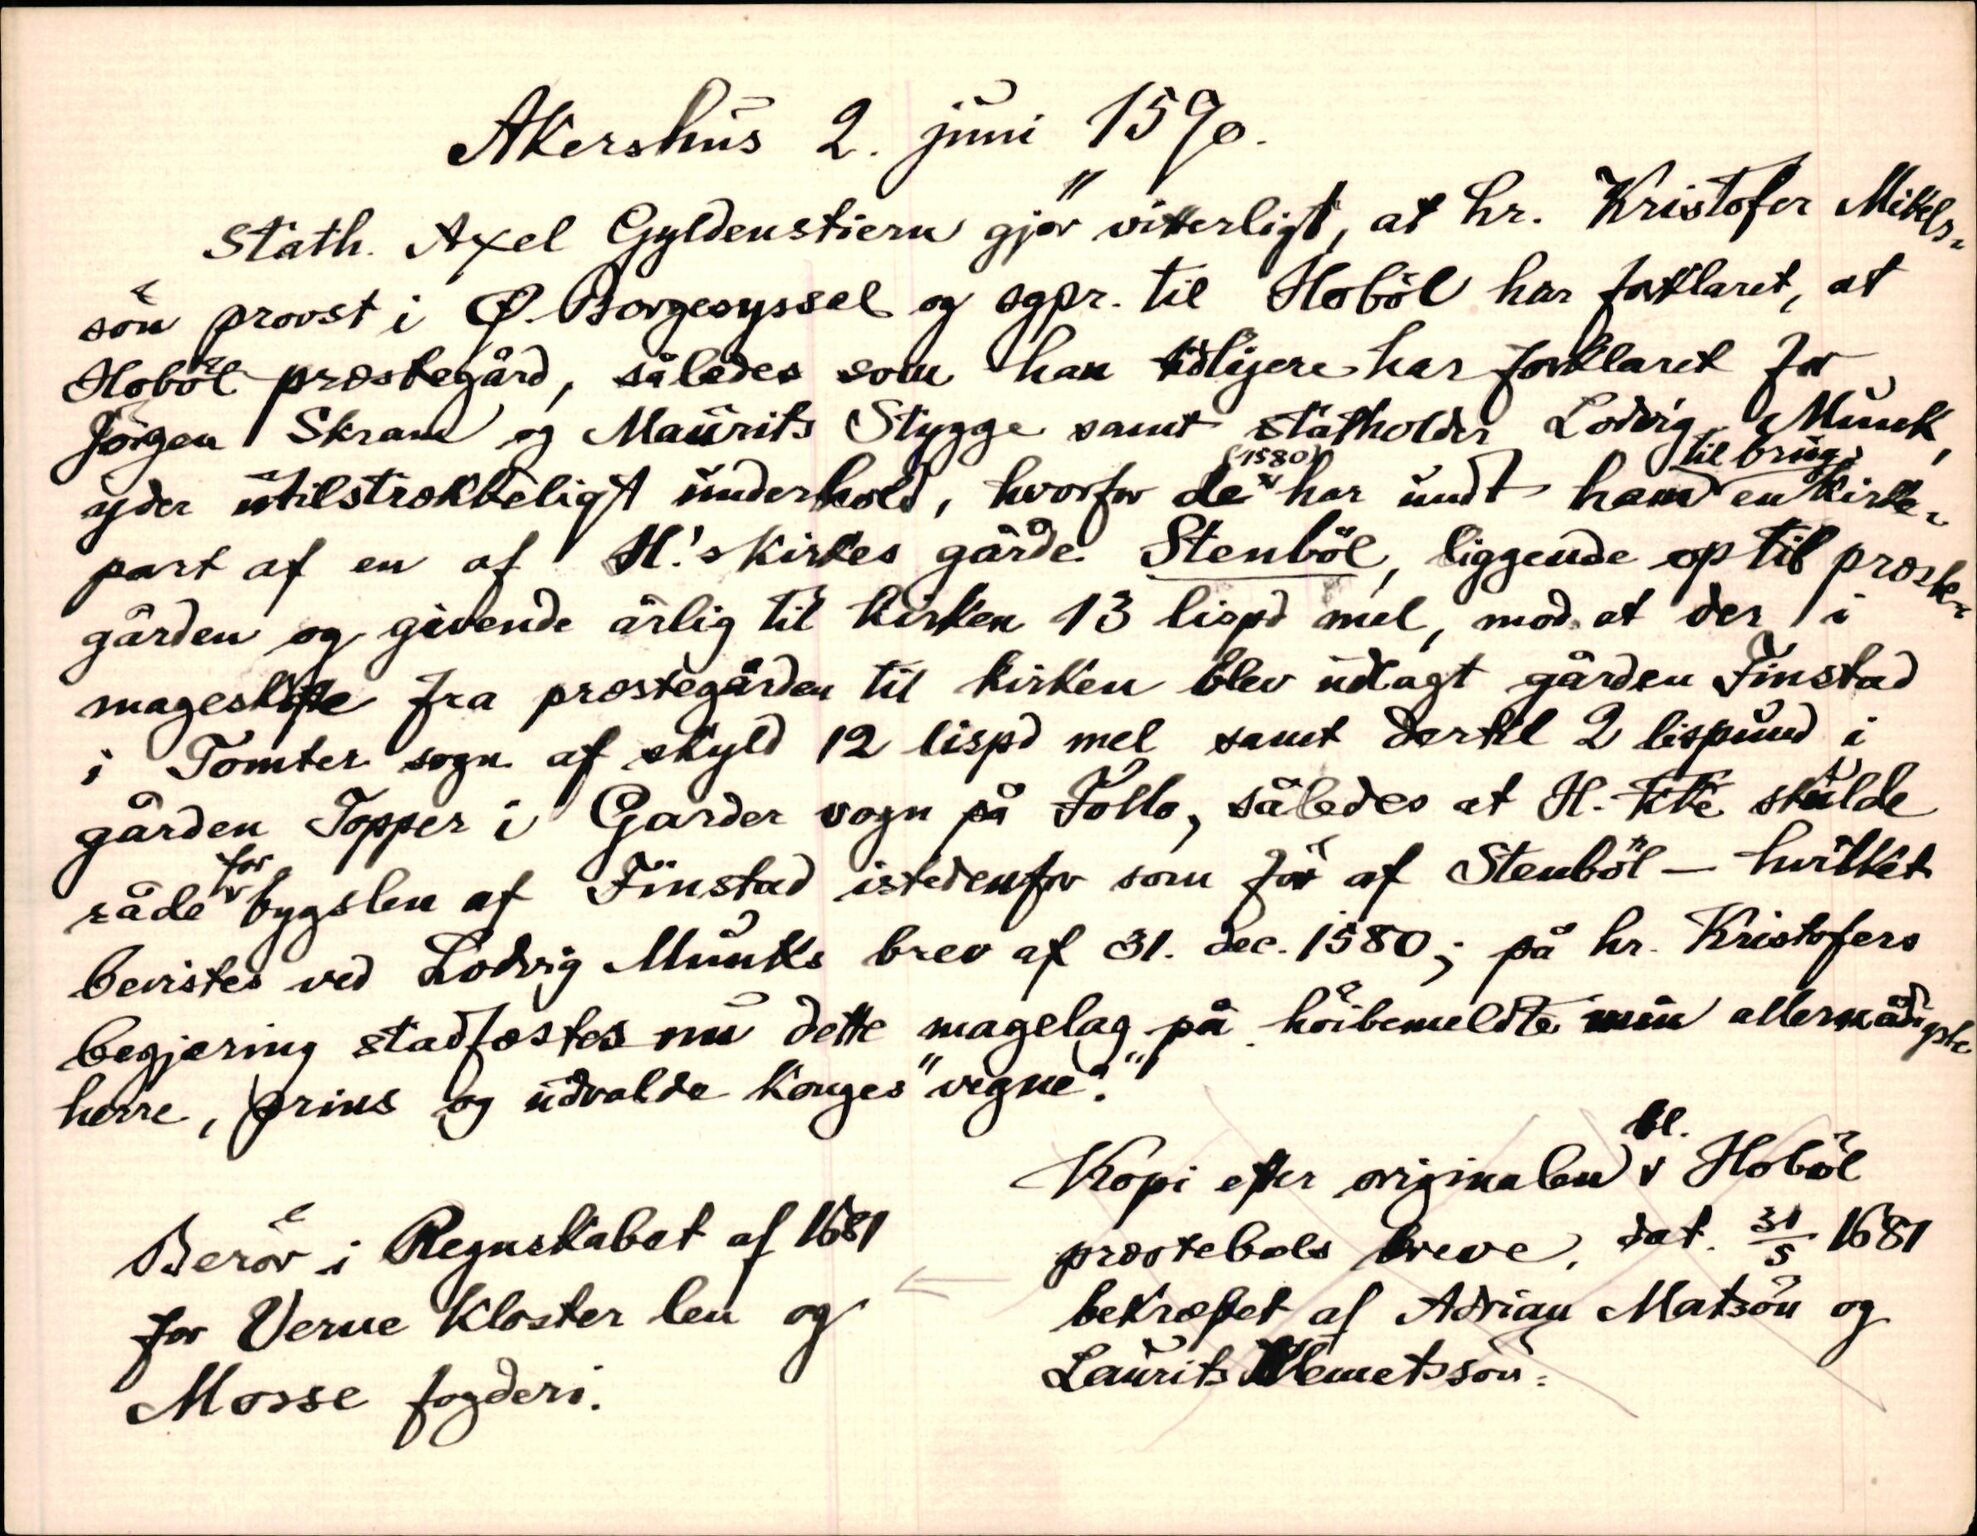 Akershus 2. juni 1590.
Stath. Axel Gyldenstiern gjør "vitterligt, at hr. Kristofer Mikels-
søn provst i Ø. Borgesyssel og sgpr. til Hobøl har forklaret, at
Hobøl præstegård, således som han tidligere har forklaret for
Jørgen Skram og Maurits Stygge samt statholder Lodvig Munk,
yder utilstrækkeligt underhold, hvorfor de (1580) har undt ham til brug en kirke-
part af en af H.'s kirkes gårde Stenbøl, liggende op til præste-
gården og givende årlig til kirken 13 lispd mel, mod at der i
mageskifte fra præstegården til kirken blev udlagt gården Finstad
i Tomter sogn af skyld 12 lispd mel samt dertil 2 lispund i
gården Topper i Garder sogn på Follo, således at H. kke skulde
råde for bygslen af Finstad istedenfor som før af Stenbøl – hvilket
bevistes ved Lodvig Munks brev af 31. dec. 1580; på hr. Kristofers
begjæring stadfæstes nu dette magelag på "høibemeldte min allernådigste
herre, prins og udvalde konges "vegne."
Kopi efter originalen bl. Hobøl
præstebols breve, dat. 31/5 1681
bekræftet af Adrian Matsøn og
Laurits Klemetssøn.
Berør i Regnskabet af 1681
for Verne Kloster len og
Mosse fogderi.